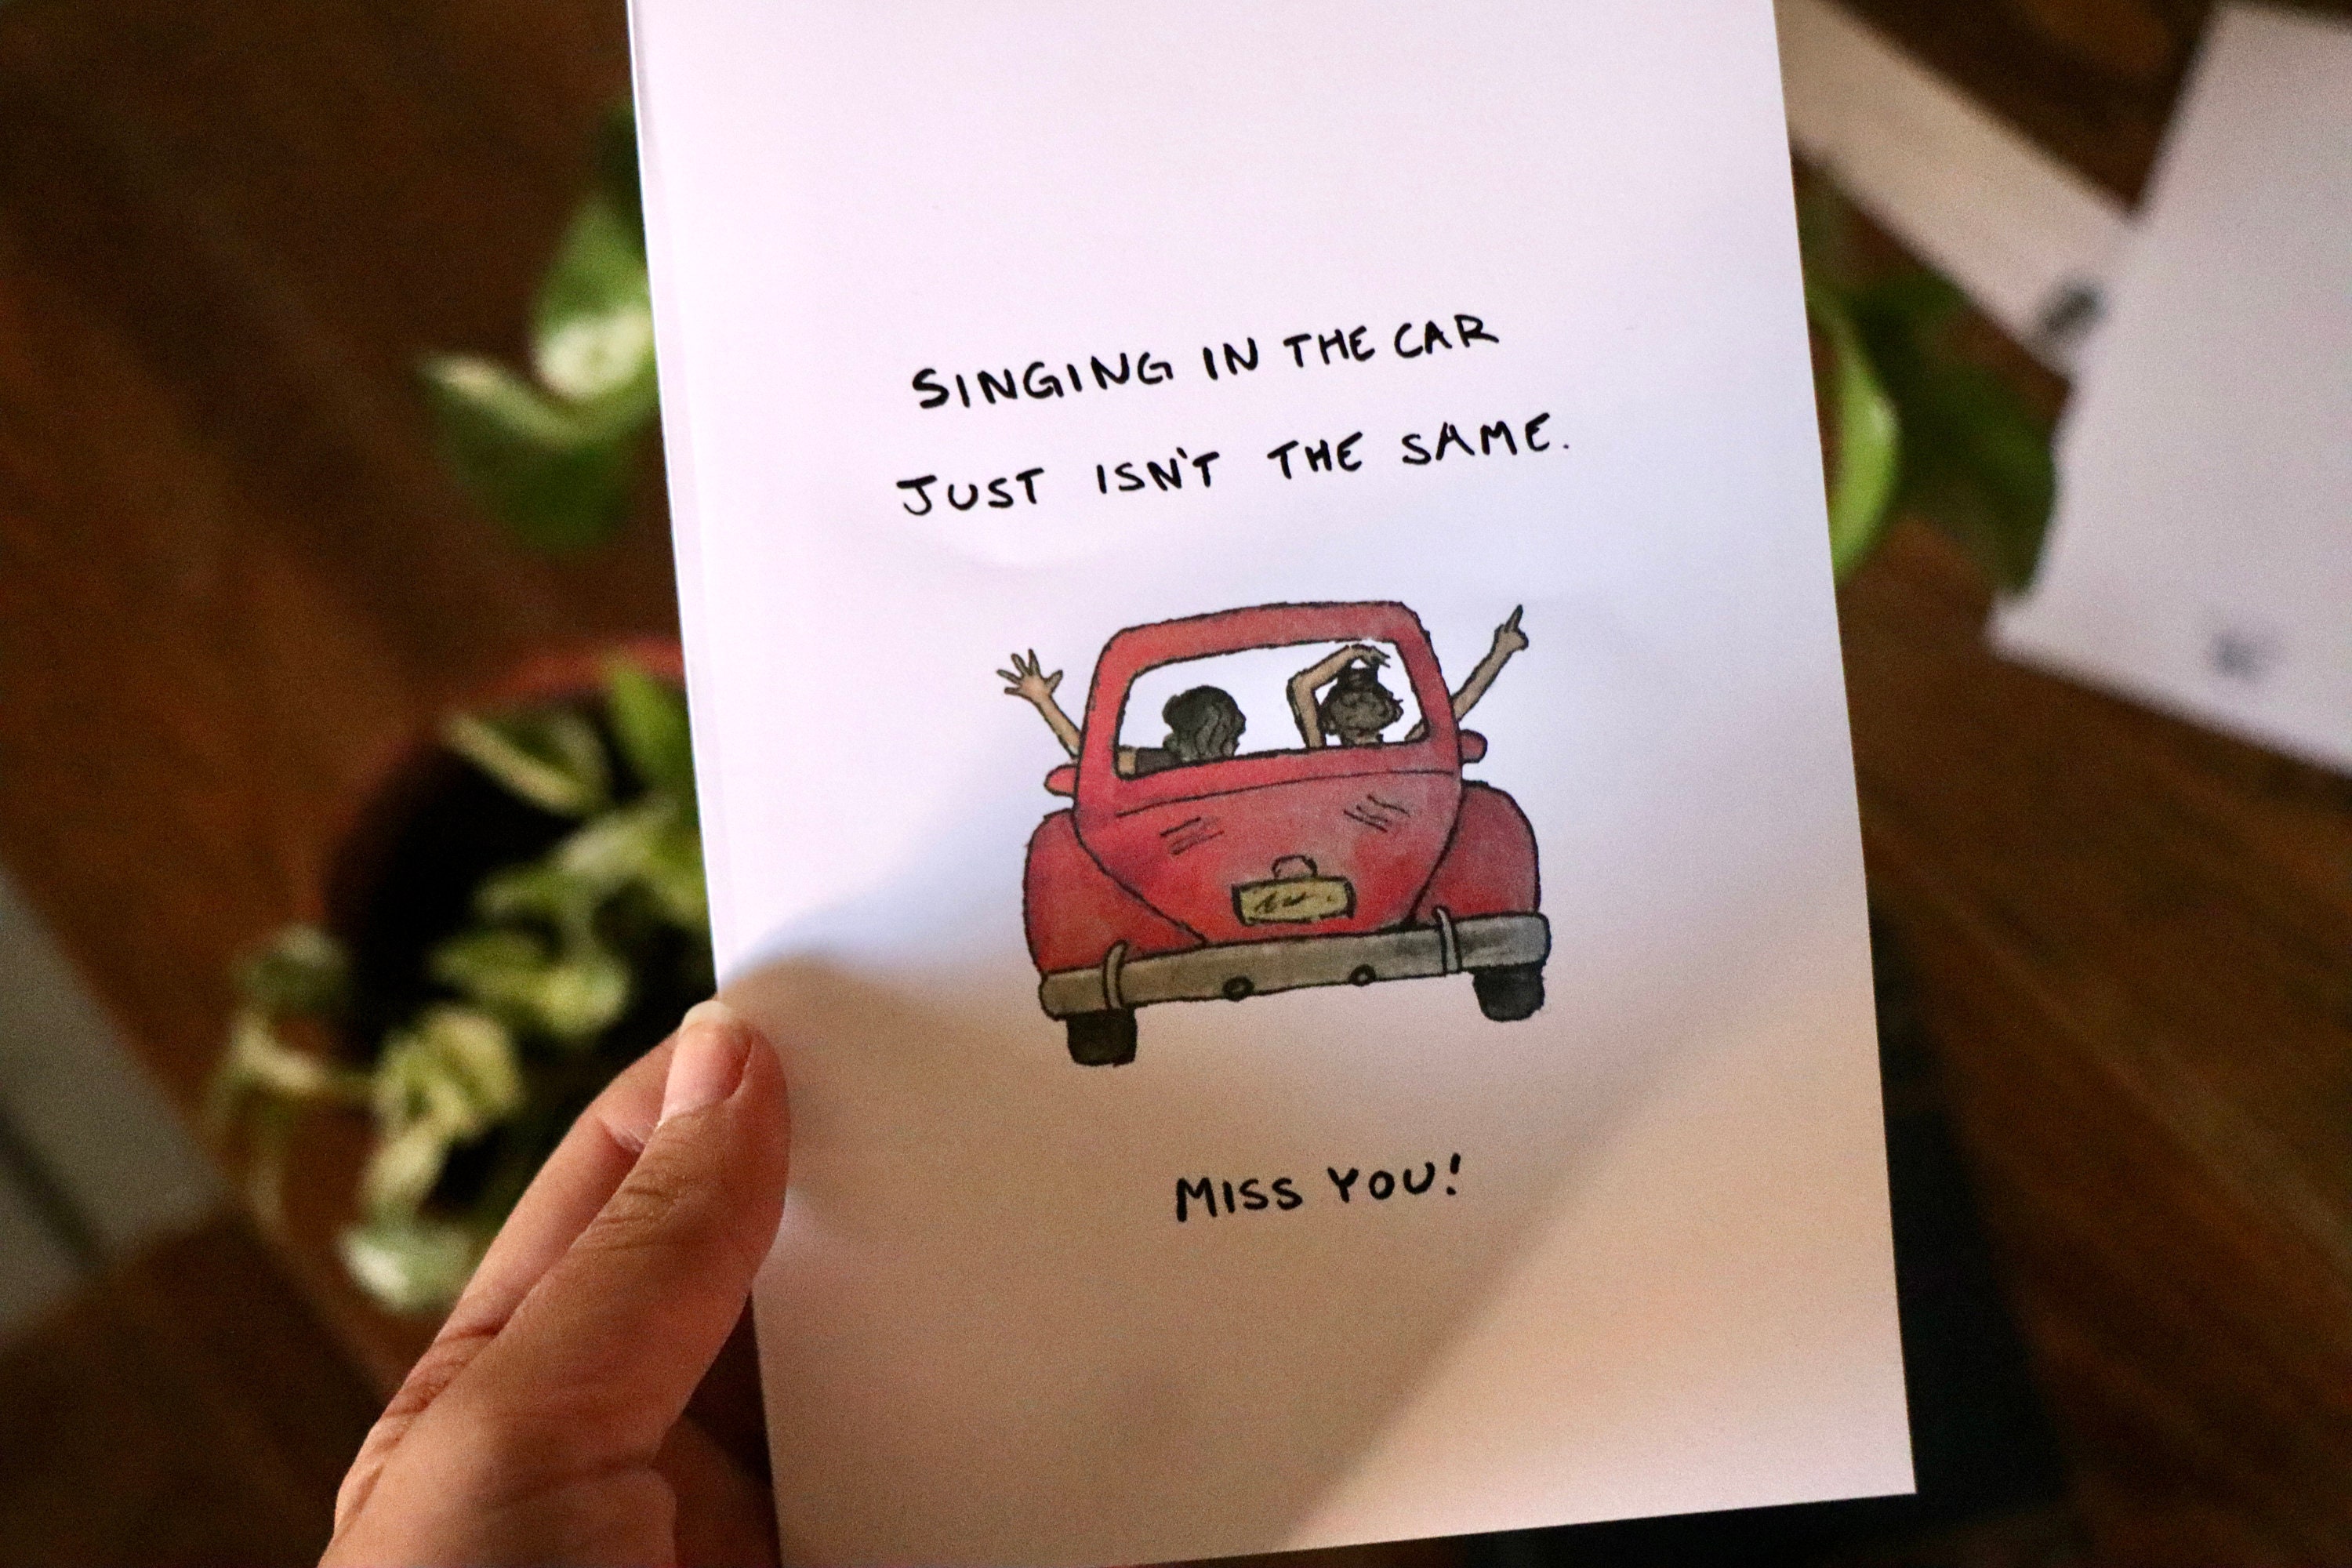 SINGING IN THE CAR
JUST ISN'T THE SAME.
MISS YOU!